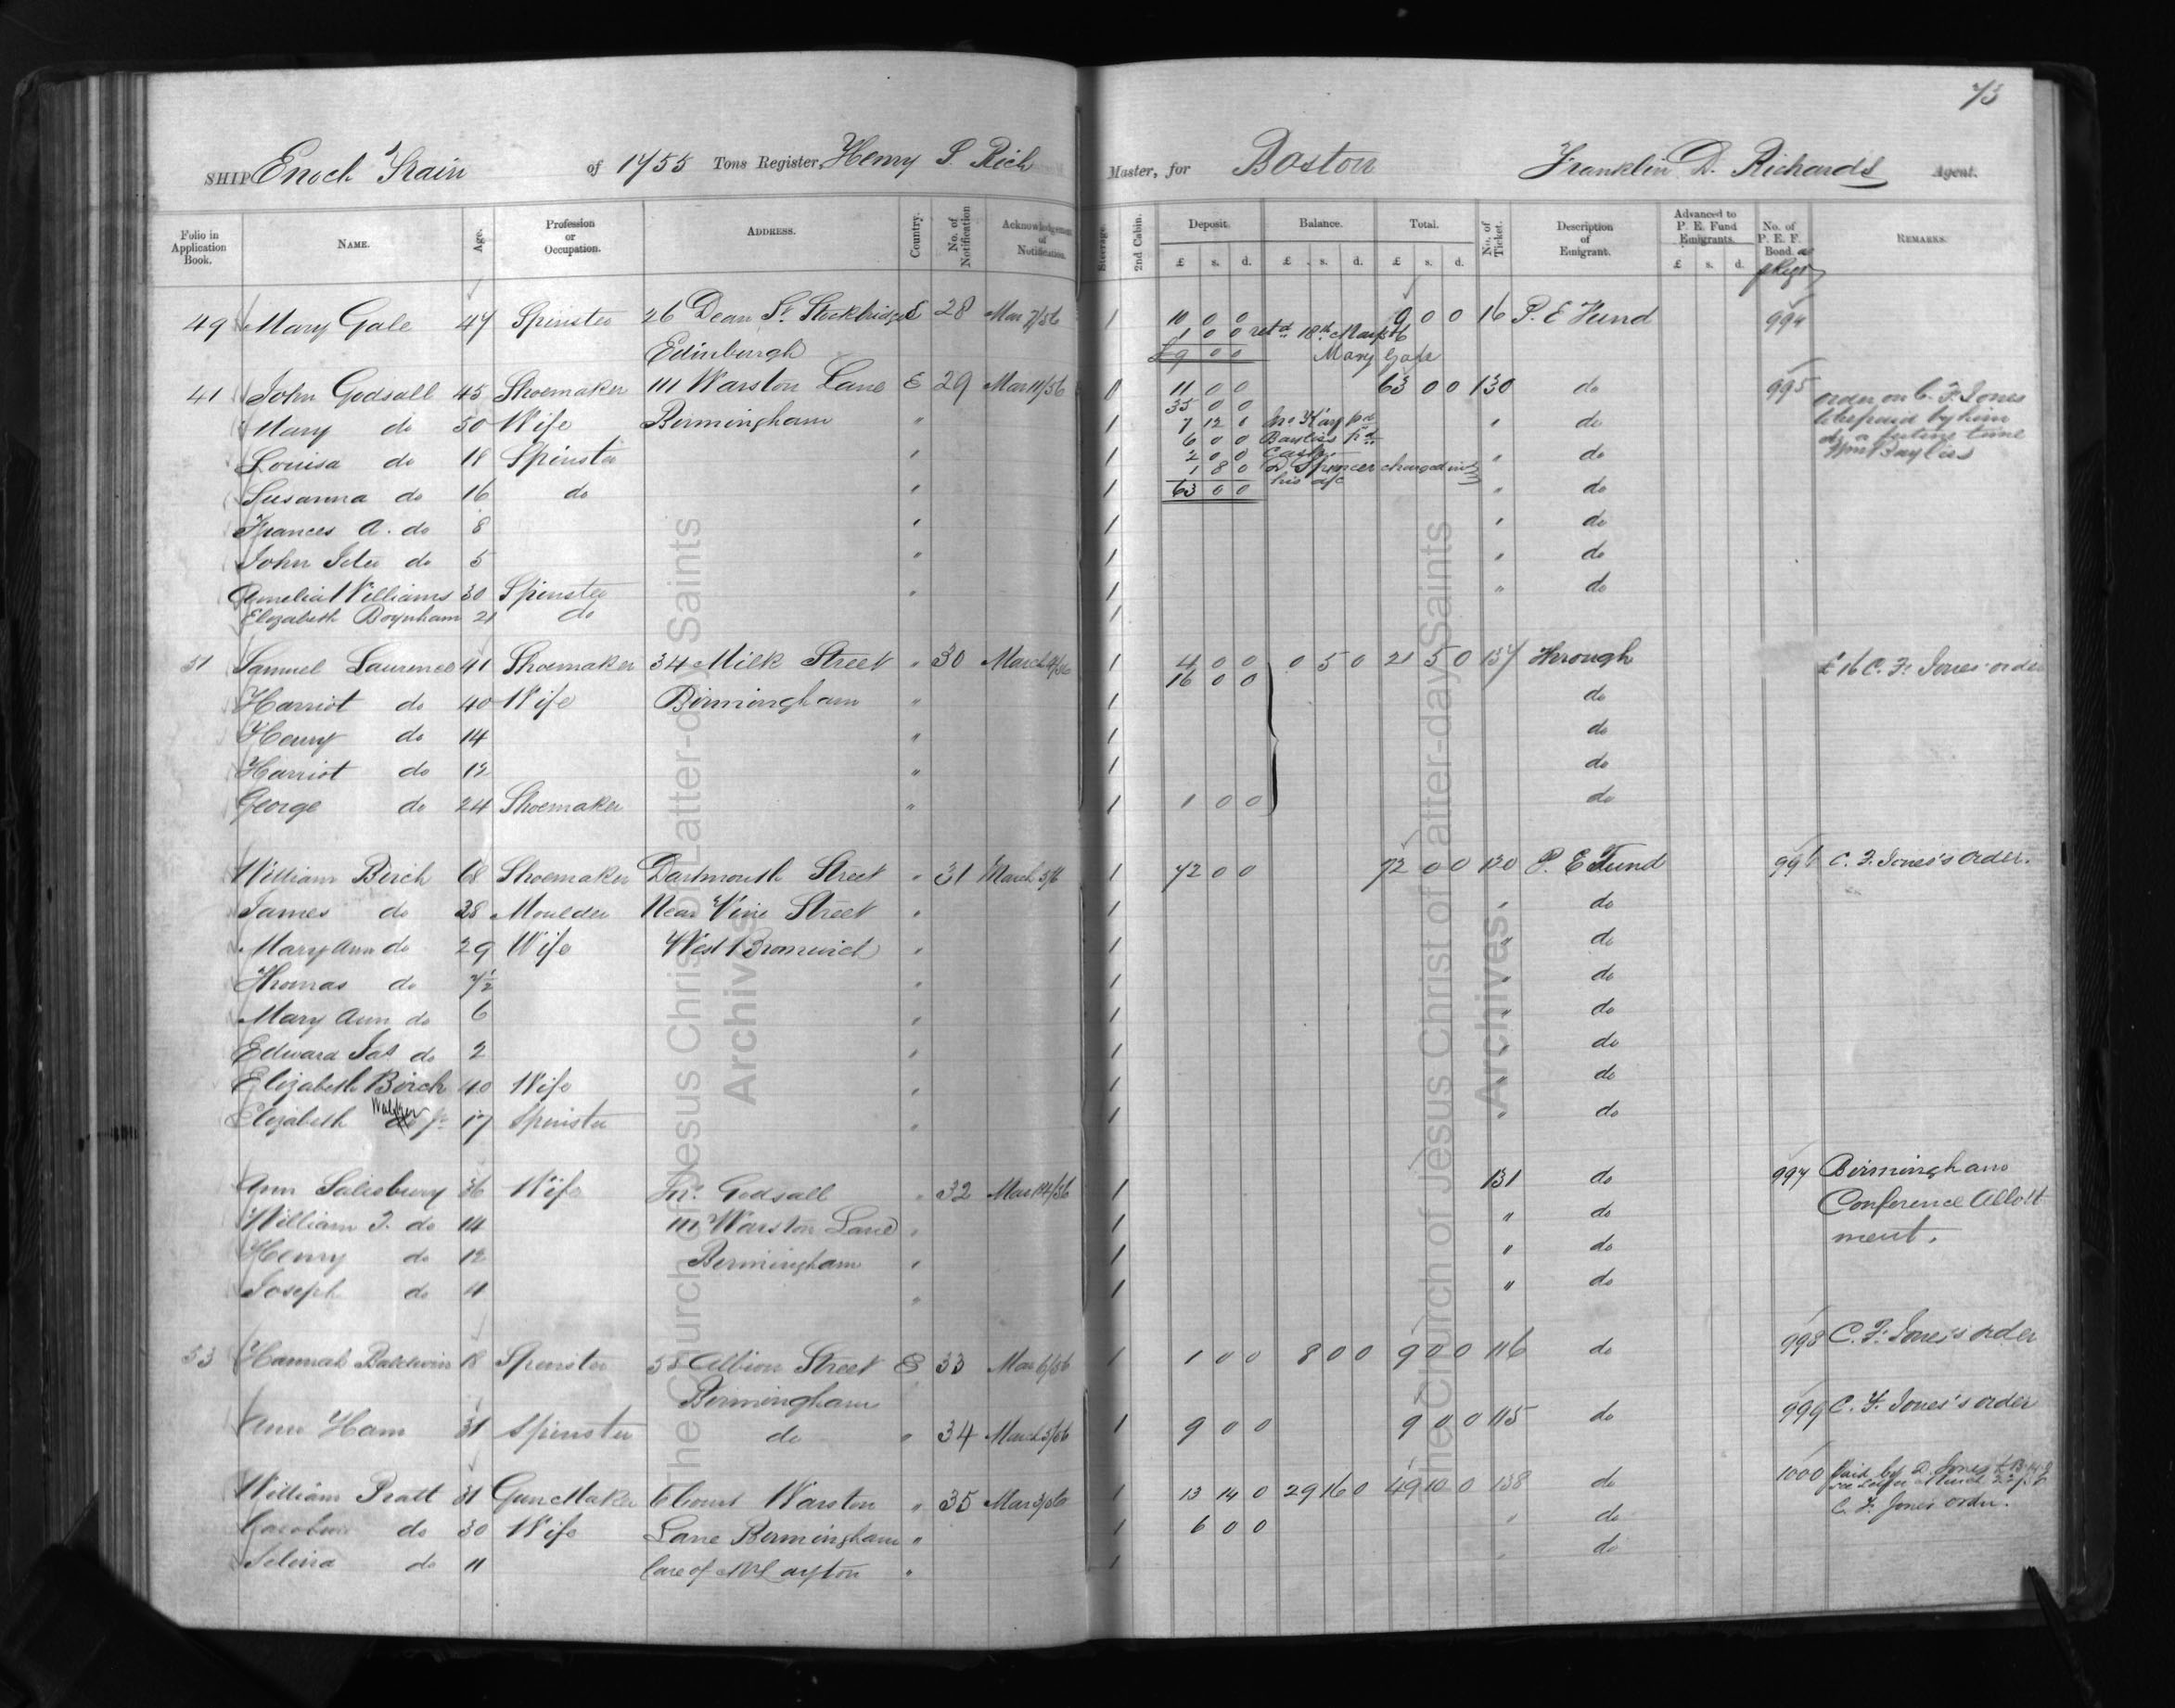 73
SHIP Enoch Train of 1455 Tons Register, Henry P. Rich Master, for Boston Franklin D. Richards Agent.
Folio in Application Book. NAME. Age. Profession or Occupation. ADDRESS. Country. No. of Notification Acknowledgement of Notification. Steerage. 2nd Cabin. Deposit. £ s. d. Balance. £ s. d. Total. £ s. d. No. of Ticket. Description of Emigrant. Advanced to P. E. Fund Emigrants. £ s. d. No. of P. E. F. Bond. REMARKS.
49 Mary Gale 47 Spinster 26 Dean St. Stockbridge E 28 Mar 7/56 1 10 0 0 9 0 0 16 P. E Fund 994
1 0 0 retd 18th Mar/56
Edinburgh £9 0 0 Mary Gale
41 John Godsall 45 Shoemaker 111 Warston Lane E 29 Mar 11/56 1 11 0 0 63 0 0 130 do 995 order on C. F. Jones
35 0 0 to be paid by him
Mary do 50 Wife Birmingham " 7 12 0 pd " do
6 0 0 Baylies pd at a future time
Louisa do 18 Spinster " 1 2 0 0 Cash " do Wm Baylies
1 8 0 D Spencer charged in
Susanna do 16 do " 1 63 0 0 his a/c " do
Frances A. do 8 " 1 " do
John do 5 " 1 " do
Amelia Williams 30 Spinster " 1 " do
Elizabeth Boynham 21 do 1
51 Samuel Laurence 41 Shoemaker 34 Milk Street " 30 March 4/56 1 4 0 0 0 5 0 21 5 0 137 Through £16 C. F. Jones' order
16 0 0
Harriot do 40 Wife Birmingham " 1 do
Henry do 14 " 1 do
Harriot do 12 " 1 do
George do 24 Shoemaker " 1 1 0 0 do
William Birch 68 Shoemaker Dartmouth Street " 31 March 5/6 1 72 0 0 72 0 0 120 P. E Fund 996 C. F. Jones's order.
James do 28 Moulder Near Vine Street " 1 " do
Mary Ann do 29 Wife West Bromwich " 1 " do
Thomas do 7½ " 1 " do
Mary Ann do 6 " 1 " do
Edward Jas do 2 " 1 " do
Elizabeth Birch 40 Wife " 1 " do
Walker
Elizabeth do 17 Spinster " 1 " do
Ann Salisbury 36 Wife Jno. Godsall " 32 Mar 14/56 1 131 do 997 Birmingham
William J. do 14 111 Warston Lane " 1 " do Conference Allott
Henry do 12 Birmingham " 1 " do ment.
Joseph do 11 " 1 " do
53 Hannah Baldwin 18 Spinster Albion Street E 33 Mar 6/56 1 1 0 0 8 0 0 9 0 0 116 do 998 C. F. Jones's order
Birmingham
Ann Ham 31 Spinster do " 34 March 5/56 1 9 0 0 9 0 0 115 do 999 C. F. Jones's order
William Pratt 31 Gun Maker 6 Court Warston " 35 Mar 3/56 1 13 14 0 29 16 0 49 10 0 138 do 1000 Paid by D. Jones
do 30 Wife Lane Birmingham " 1 6 0 0 " do C. F. Jones order.
Selina do 11 Care of Layton " 1 do
The Church of Jesus Christ of Latter-day Saints Archives
The Church of Jesus Christ of Latter-day Saints Archives